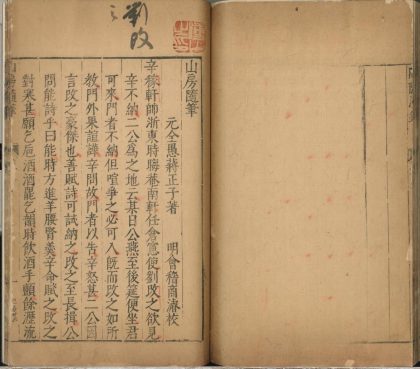 劉改
之
山房隨筆
元仝愚蔣正子著 明會稽商濬校
辛稼軒帥浙東時晦菴南軒任倉憲使劉改之欲見
辛不納二公為之地云某日公燕至後筵便坐君
可來門者不納但喧爭之必可入既而改之如所
教門外果諠譁辛問故門者以告辛怒甚二公因
言改之豪傑也善賦詩可試納之改之至長揖公
問能詩乎曰能時方進羊腰腎羹辛命賦之改之
對寒甚願乞卮酒酒罷乞韻時飲酒手顫餘瀝流